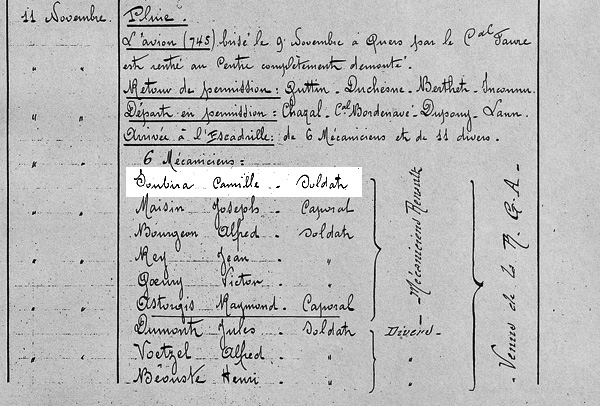 11 Novembre. Pluie.
" " L'avion (745) brisé le 9 Novembre à Quers par le Cal Faure
" " est rentré au Centre complètement démonté.
" " Retour de permission: Guttin - Duchesne - Berthet - Inconnu.
" " Départ en permission: Chazal - Cal Bordenave - Dupouy - Lann.
" " Arrivée à l'Escadrille: de 6 Mécaniciens et de 11 divers.
" " 6 Mécaniciens:
Soubira Camille - Soldat
" " Maisin Joseph - Caporal
" " Bourgeon Alfred - Soldat
" " Rey Jean - "
" " Victor - "
" " Astorgis Raymond - Caporal
" " Dumont Jules - Soldat Divers -
" " Voetzel Alfred - " "
" " Béouste Henri - " "
- Mécaniciens
- Venus de la R G A -